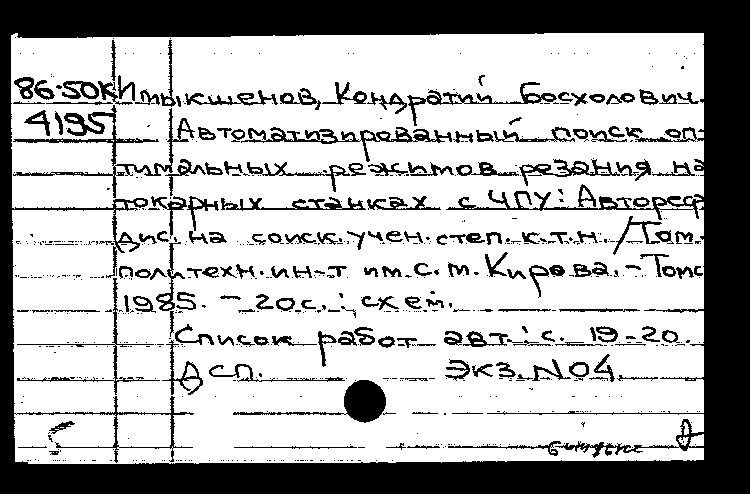 86-50К Имыкшенов, Кондратий Босхолович.
4195 Автоматизированный поиск оп-
тимальных режимов резания на
токарных станках с ЧПУ: Автореф
дис. на соиск. учен. степ. к.т.н. / Том.
политехн. ин-т им. С. М. Кирова. - Томс
1985. - 20 с. : схем.
Список работ авт.: с. 19-20.
ДСП. Экз. N 04.
5